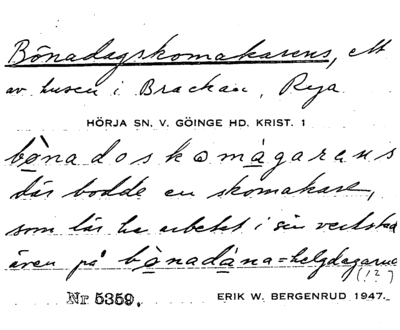 Bönadagskomakarens, ett
av husen i Brackan, Rya
HÖRJA SN. V. GÖINGE HD. KRIST. 1
bònadoskomágarans
där bodde en skomakare,
som lär ha arbetat i sin verkstad
även på bònadána=helgdagarne
(!?)
Nr 5359. ERIK W. BERGENRUD 1947.